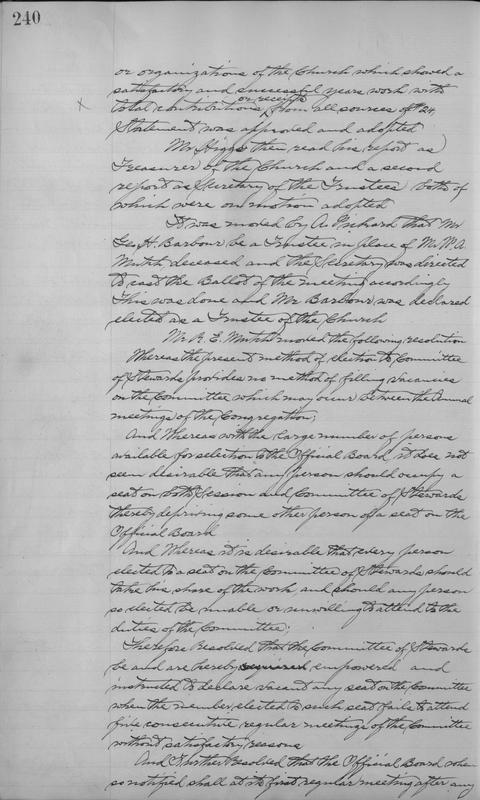 240
or organizations of the Church which showed a
satisfactory and successful years work with
or receipts
x total contributions from all sources of
Statement was approved and adopted
Mr Higgs then read his report as
Treasurer of the Church and a second
report as Secretary of the Trustees both of
which were on motion adopted
It was moved by A. Pichard that Mr
Geo. H. Barbour be a Trustee in place of Mr W. A.
Mutch deceased and the Secretary was directed
to cast the Ballot of the meeting accordingly
This was done and Mr Barbour was declared
elected as a Trustee of the Church
Mr R. E. Mutch moved the following resolution
Whereas the present method of election to Committee
of Stewards provides no method of filling vacancies
on the Committee which may occur between the Annual
meetings of the Congregation;
And Whereas with the large number of persons
available for selection to the Official Board, it does not
seem desirable that any person should occupy a
seat on both Session and Committee of Stewards
thereby depriving some other person of a seat on the
Official Board
And Whereas it is desirable that every person
elected to a seat on the Committee of Stewards should
take his share of the work and should any person
so elected be unable or unwilling to attend to the
duties of the Committee;
Therefore Resolved that the Committee of Stewards
be and are hereby required empowered and
instructed to declare vacant any seat on the Committee
when the member elected to such seat fails to attend
five consecutive regular meetings of the Committee
without satisfactory reasons
And Further Resolved that the Official Board when
so notified shall at its first regular meeting after any